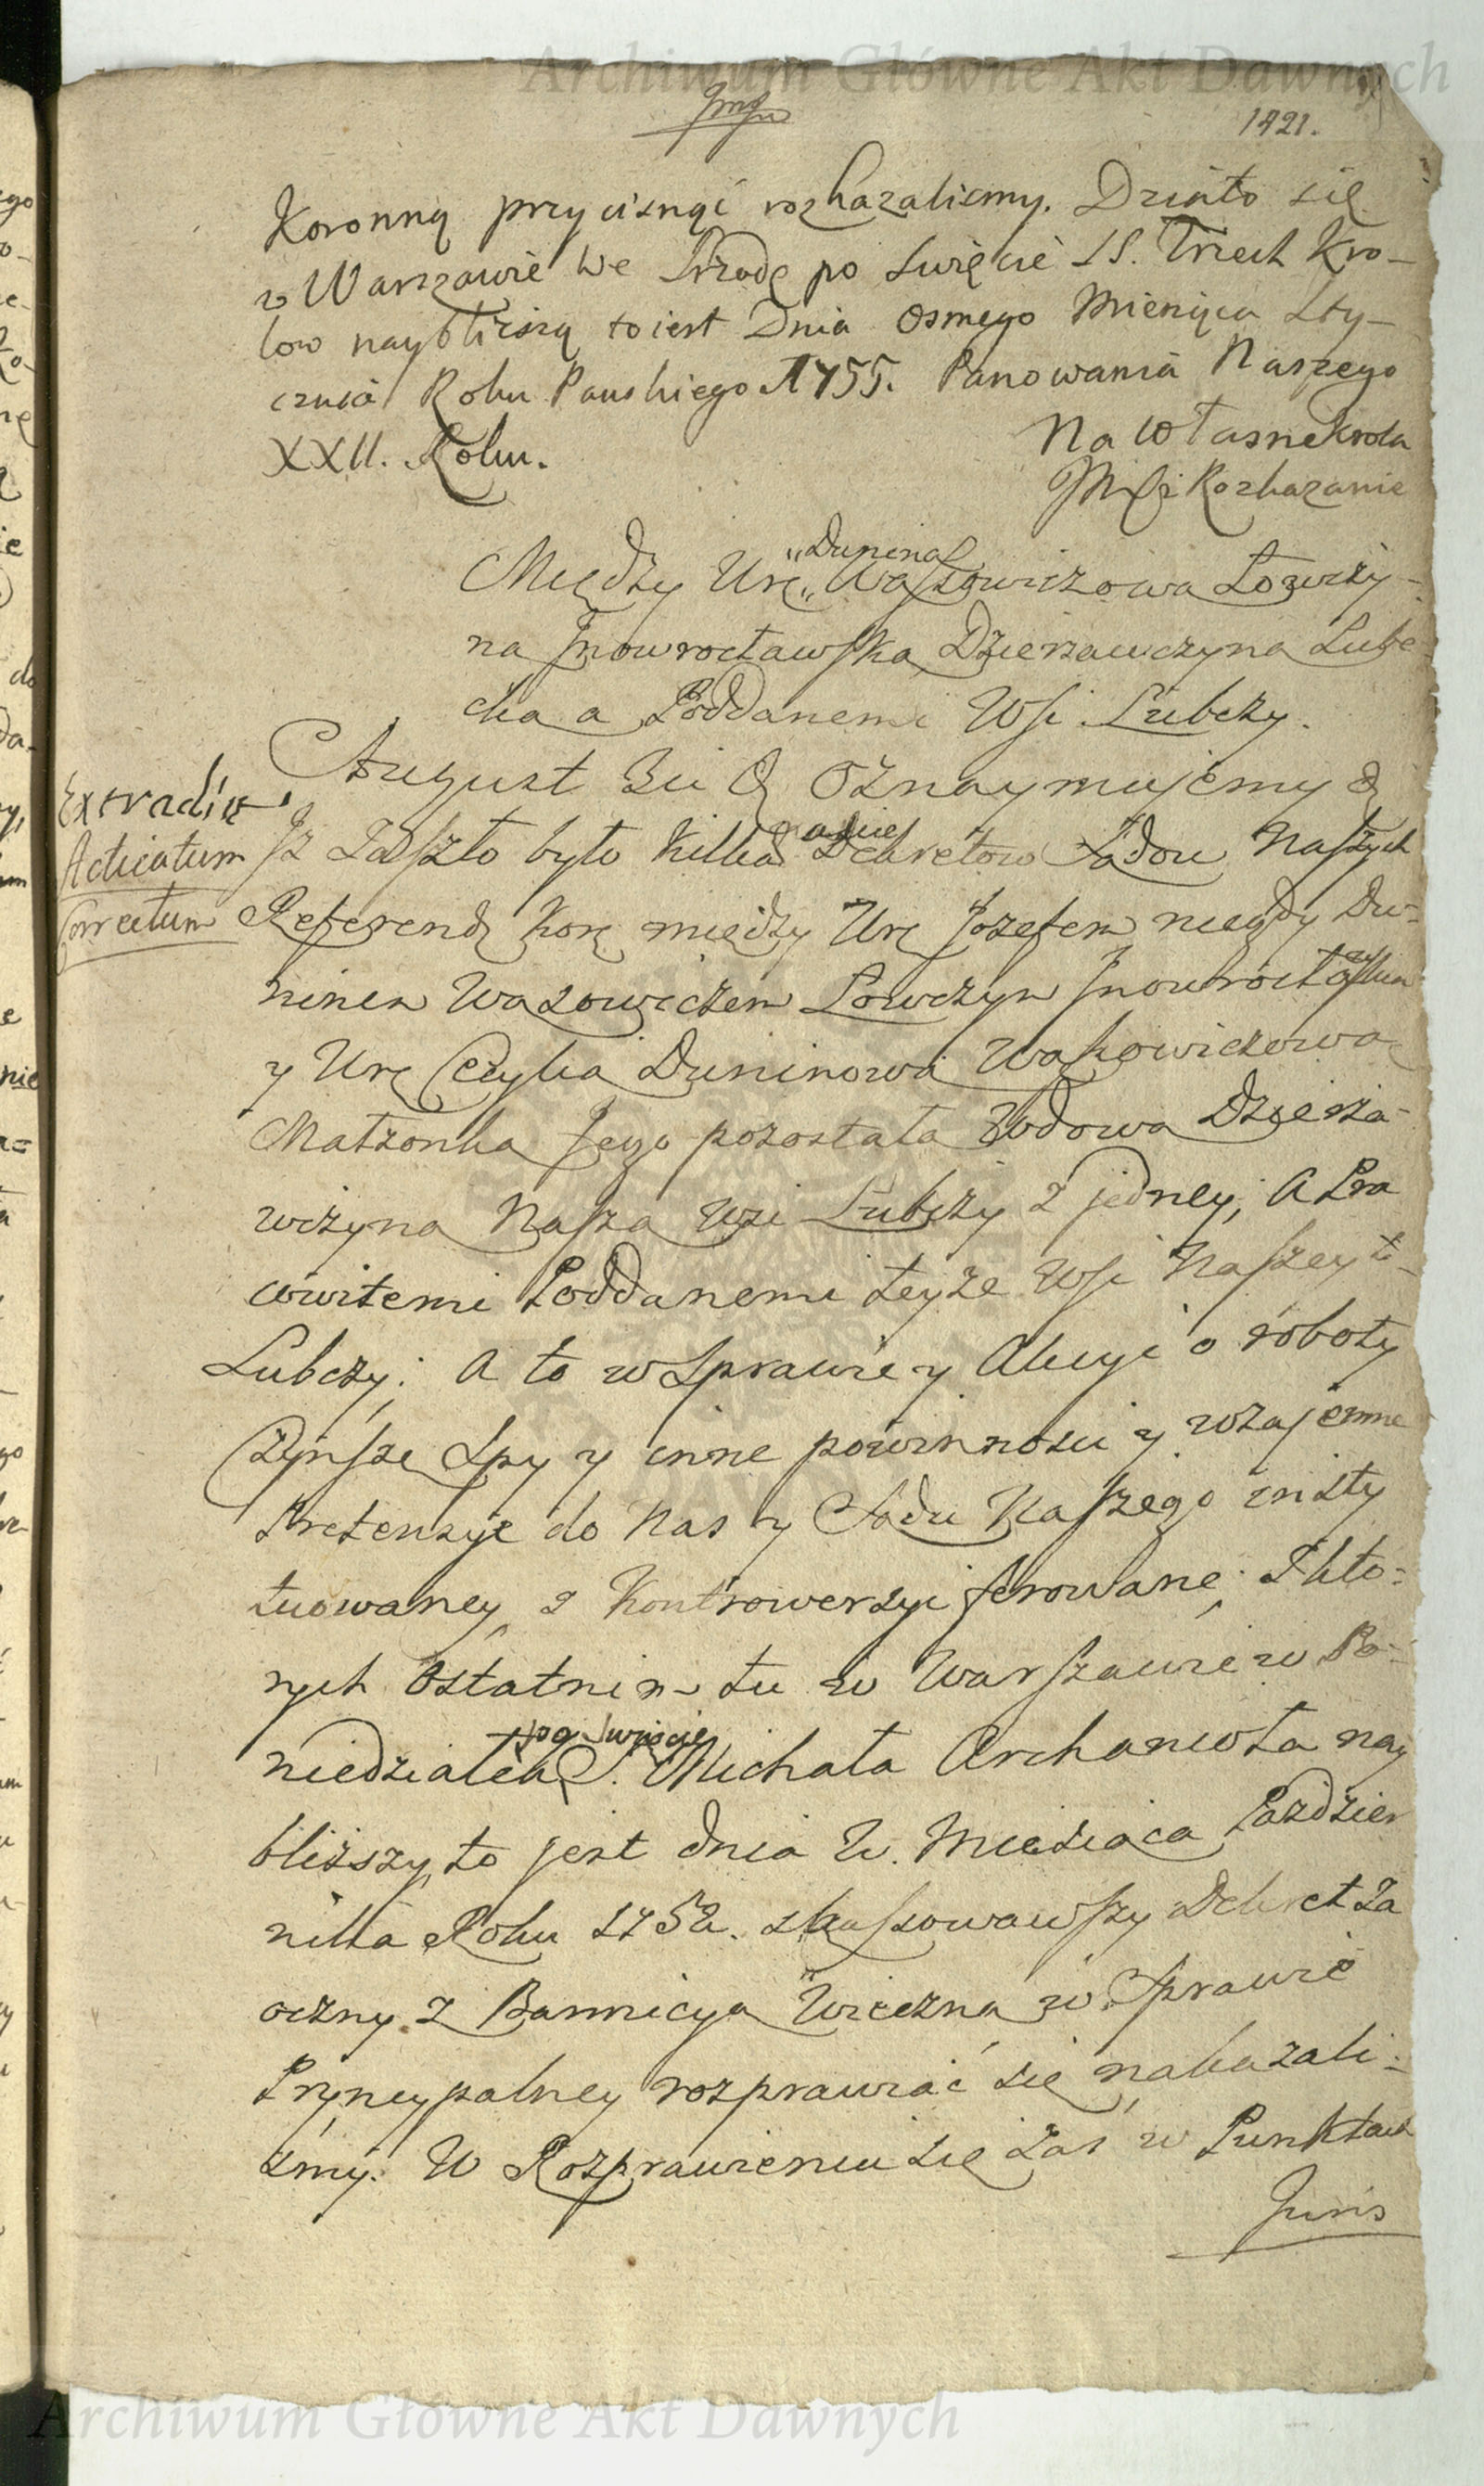 Archiwum Główne Akt Dawnych
1421.
Koronną przycisnąć rozkazalismy. Działo się
w Warszawie we Srzodę po Swięcie SS. Trzech Kro-
low naybliższą to iest Dnia Osmego Miesiąca Sty-
cznia Roku Pańskiego 1755. Panowania Naszego
XXII. Roku.
Na Własne Krola
Mci Rozkazanie
Między Ur. "Dunina"
Waſsowiczowa Łowczy-
na Jnowrocławſka Dzierzawczyna Lube-
cka a Poddanemi Wſi Lubczy.
August 3ci & Oznaymujemy &
Extradit.
Acticatum
Correctum
Jż Zaszło było kilka naście Dekretow Sądow Naſzych
Referend Kor między Ur Jozefem niegdy Du-
ninem Wasowiczem Łowczym Jnowrocławskim
y Ur Cecylia Duninowa Waſsowiczowa
Małzonka Jego pozostała Wdowa Dzierza-
wczyna Naſza Wsi Lubczy z jedney; A Pra
cowitemi Poddanemi teyze Wſi Naſzey
Lubczy; A to w Sprawie y Akcyi o roboty
Czynſze Spy y inne powinnosci y wzajemne
Pretensye do Nas y Sądu Naſzego insty
tuowaney z Kontrowersyi ferowane; Z kto-
rych Ostatnim tu w Warſzawie w Po-
niedziałek po Swięcie S. Michała Archanioła nay
bliższy to jest dnia W. Miesiąca Pazdzier
nika Roku 1752. skaſsowawſzy Dekret Za
oczny z Bannicya Wieczna w Sprawie
Pryncypalney rozprawiać się nakazali-
smy. W Rozprawieniu się zas w Punktach
Juris
Archiwum Główne Akt Dawnych